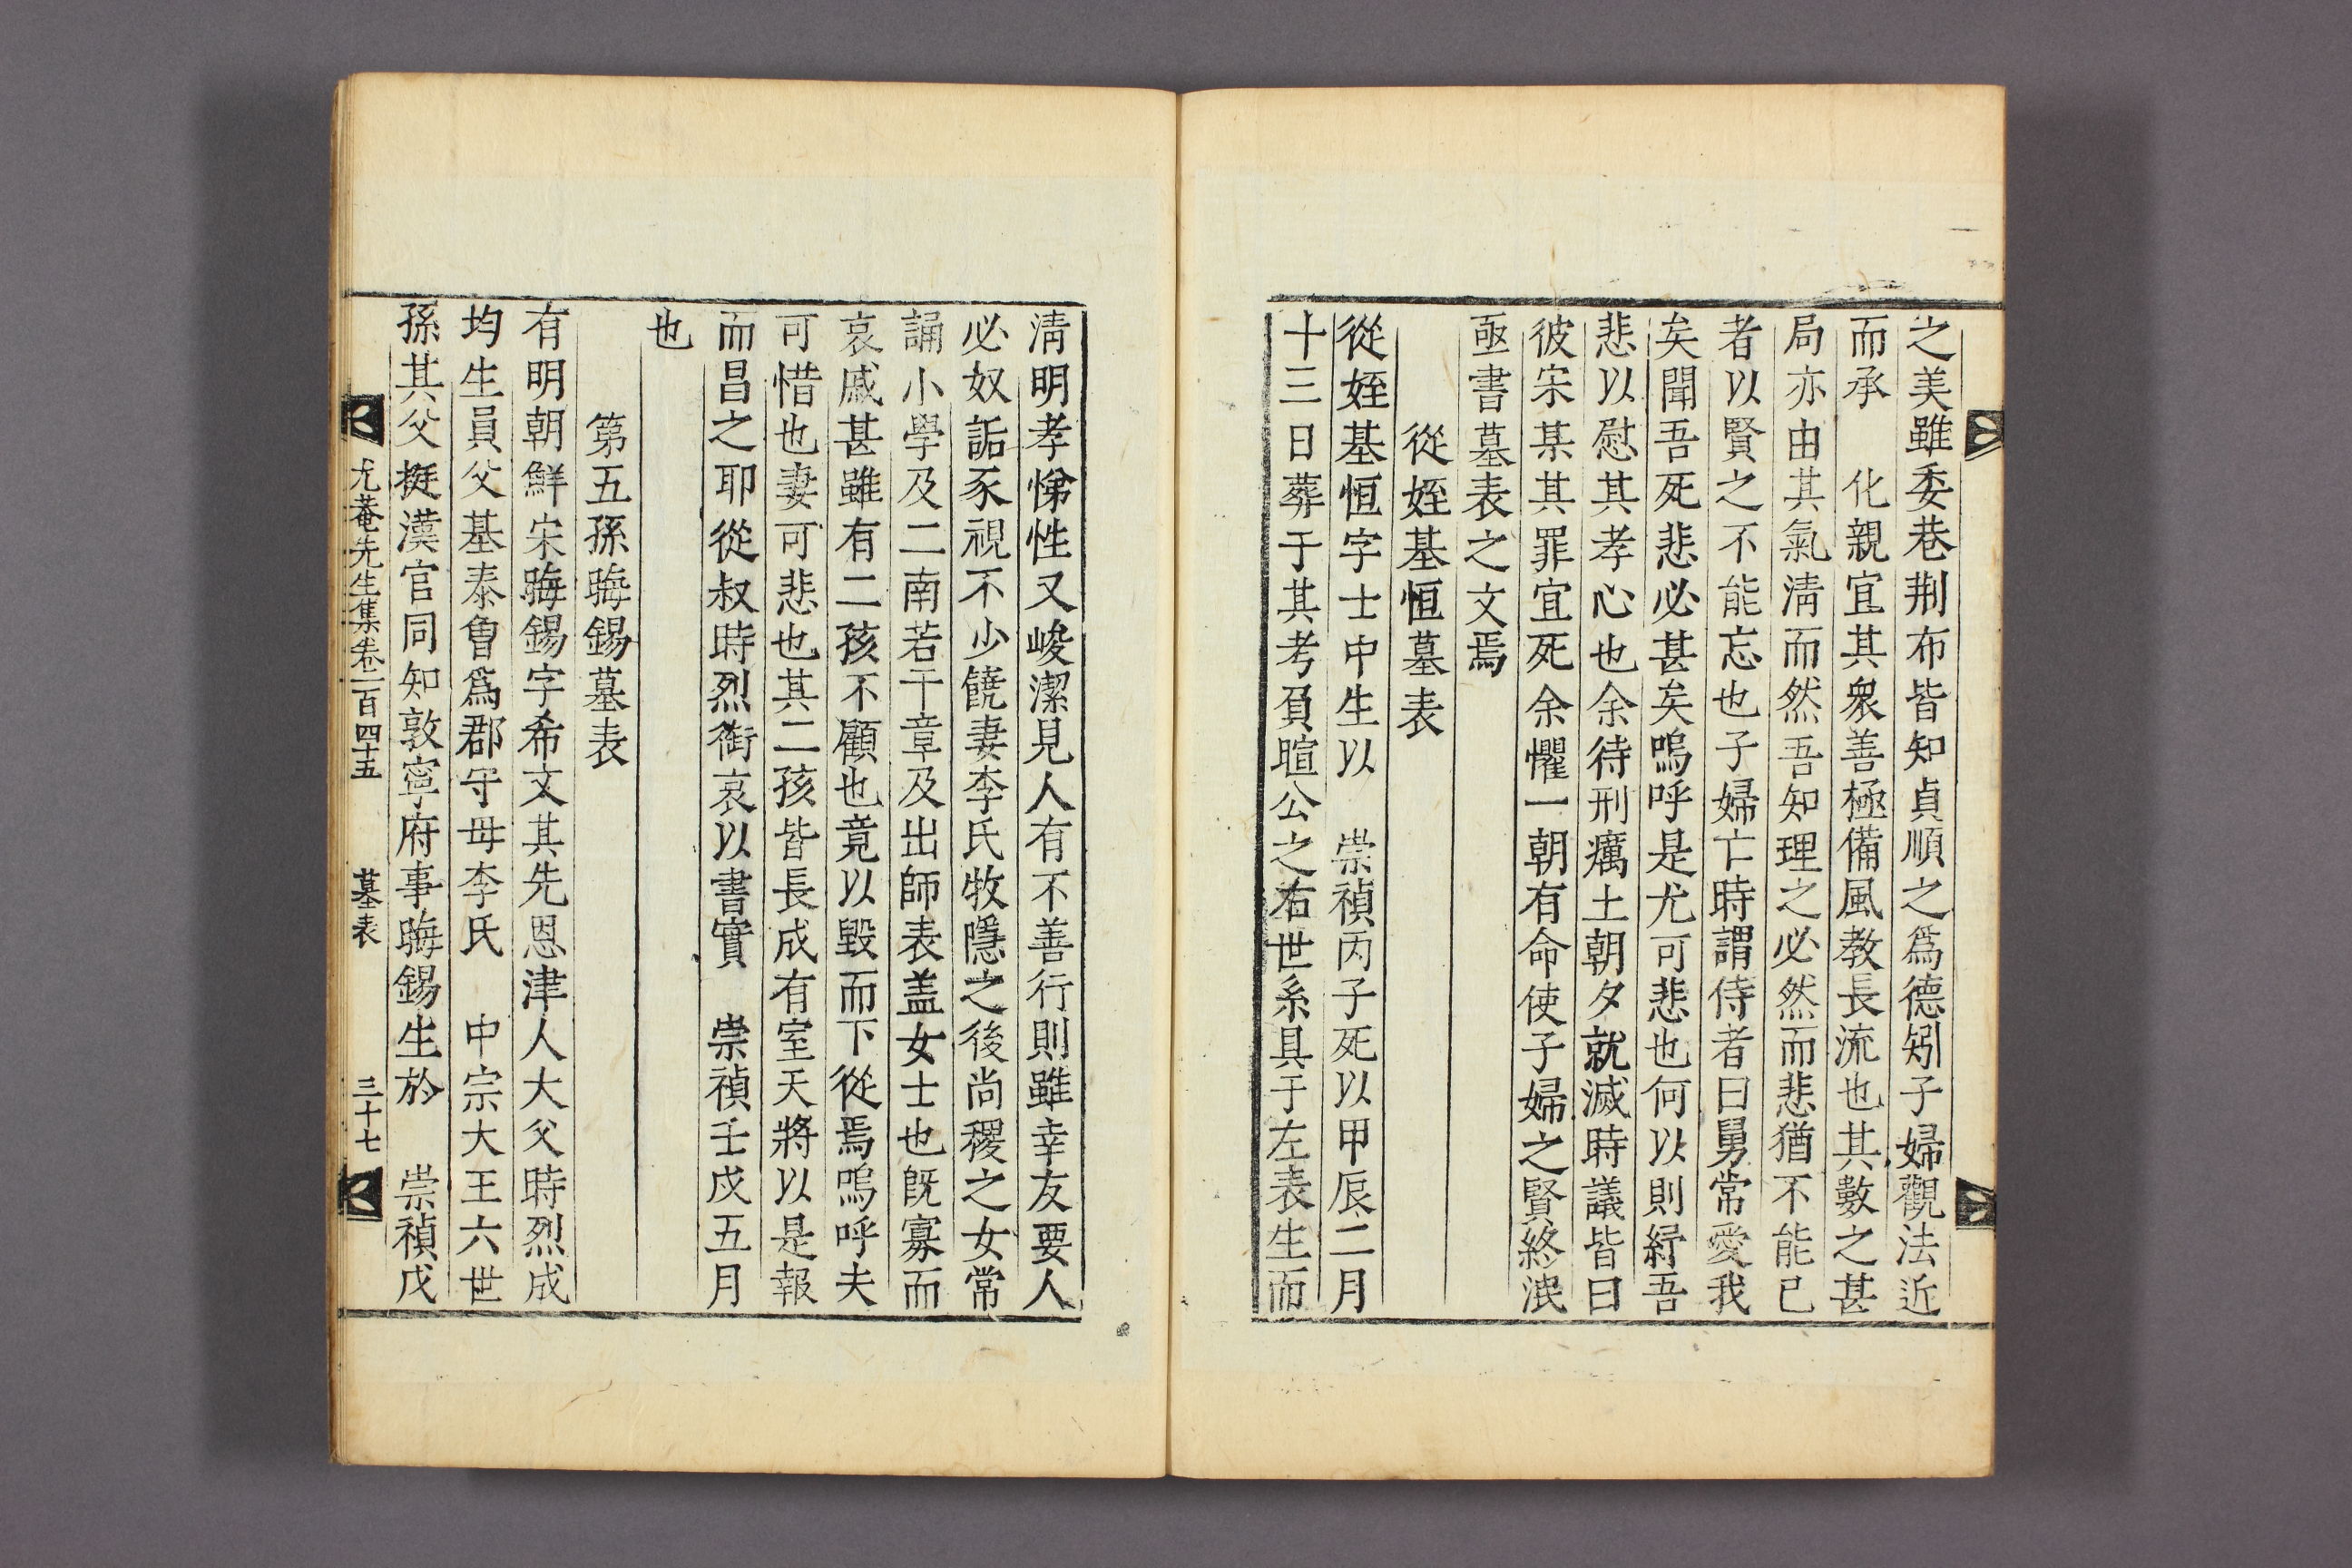 之美雖委巷荆布皆知貞順之爲德矧子婦觀法近
而承　化親宜其衆善極備風教長流也其數之甚
局亦由其氣淸而然吾知理之必然而悲猶不能已
者以賢之不能忘也子婦亡時謂侍者曰舅常愛我
矣聞吾死悲必甚矣嗚呼是尤可悲也何以則紓吾
悲以慰其孝心也余待刑癘土朝夕就滅時議皆曰
彼宋某其罪宜死余懼一朝有命使子婦之賢終泯
亟書墓表之文焉
從姪基恒墓表
從姪基恒字士中生以　崇禎丙子死以甲辰二月
十三日葬于其考負暄公之右世系具于左表生而
淸明孝悌性又峻潔見人有不善行則雖幸友要人
必奴詬豕視不少饒妻李氏牧隱之後尚稷之女常
誦小學及二南若干章及出師表盖女士也旣寡而
哀戚甚雖有二孩不顧也竟以毀而下從焉嗚呼夫
可惜也妻可悲也其二孩皆長成有室天將以是報
而昌之耶從叔時烈銜哀以書實　崇禎壬戌五月
也
第五孫晦錫墓表
有明朝鮮宋晦錫字希文其先恩津人大父時烈成
均生員父基泰曾爲郡守母李氏　中宗大王六世
孫其父挺漢官同知敦寧府事晦錫生於　崇禎戊
尤菴先生集卷一百四十五　墓表　三十七